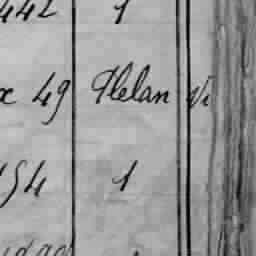 442 1
49 Helan Vi
154 1